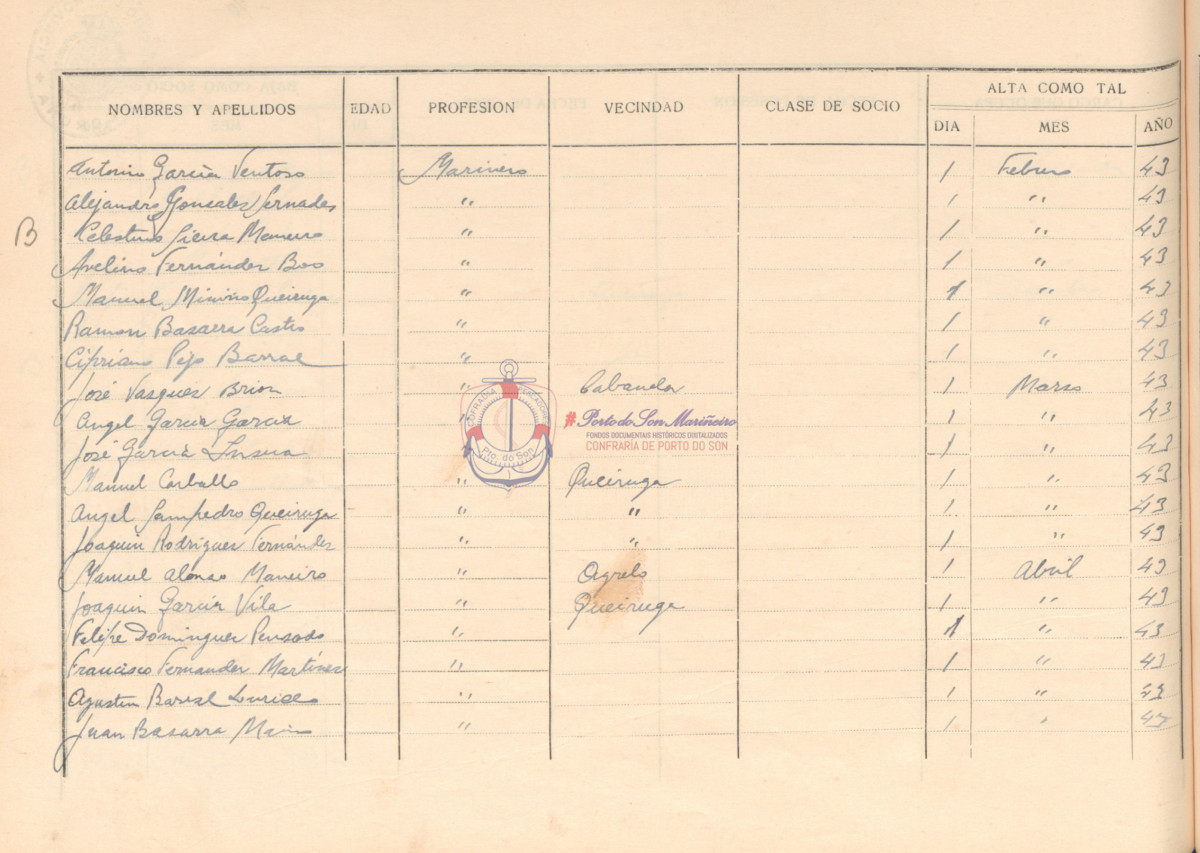 ALTA COMO TAL
NOMBRES Y APELLIDOS EDAD PROFESION VECINDAD CLASE DE SOCIO DIA MES AÑO
Antonio García Ventoso Marinero 1 Febrero 43
Alejandro Gonzales Sernadas " 1 " 43
B Celestino Sieira Maneiro " 1 " 43
Avelino Fernández Boo " 1 " 43
Manuel Miniño Queiruga " 1 " 43
Ramon Basarra Castro " 1 " 43
Cipriano Pejo Barral " 1 " 43
José Vasquez Brion " Cabandor 1 Marzo 43
Angel García García " 1 " 43
José García 1 " 43
Manuel Carballo " Queiruga 1 " 43
Angel Sampedro Queiruga " " 1 " 43
Joaquin Rodriguez Fernández " " 1 " 43
Manuel Alonso Maneiro " Agrelo 1 Abril 43
Joaquin García Vila " Queiruga 1 " 43
Felipe Dominguez Pensado " 1 " 43
Francisco Fernandez Martínez " 1 " 43
Agustin Barral " 1 " 43
Juan Basarra " 1 " 43
COFRADÍA PESCADORES
Pto. do Son
#Porto do Son Mariñeiro
FONDOS DOCUMENTAIS HISTÓRICOS DIXITALIZADOS
CONFRARÍA DE PORTO DO SON